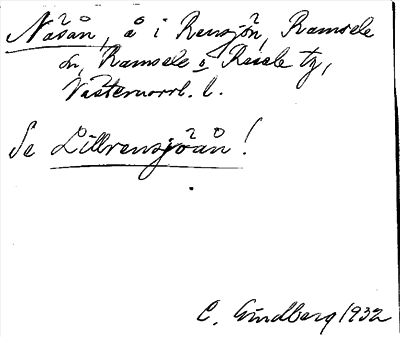 Nåsån, å i Rensjön, Ramsele
sn, Ramsele o Resele tg,
Västernorrl. l.
Se Lillrensjöån!
C. Lindberg 1932